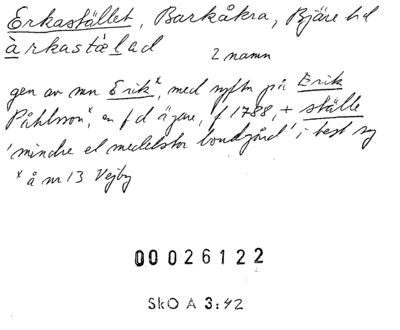 Erkastället, Barkåkra, Bjäre hd
àrkastǽlad
2 namn
gen av mn Erik*, med syftn på Erik
Påhlsson*, en f d ägare, f 1788, + ställe
'mindre el medelstor bondgård' i best sg
* å nr 13 Vejby
00026122
SkO A 3:42